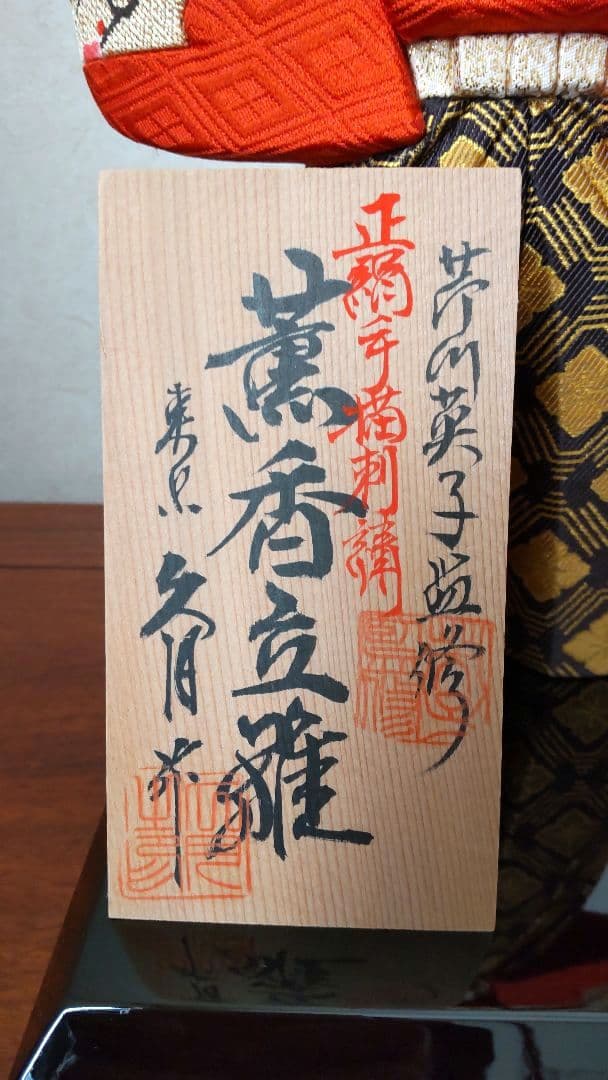 芹川英子監修
正絹手描刺繍
薫香立雛
東京 久月作